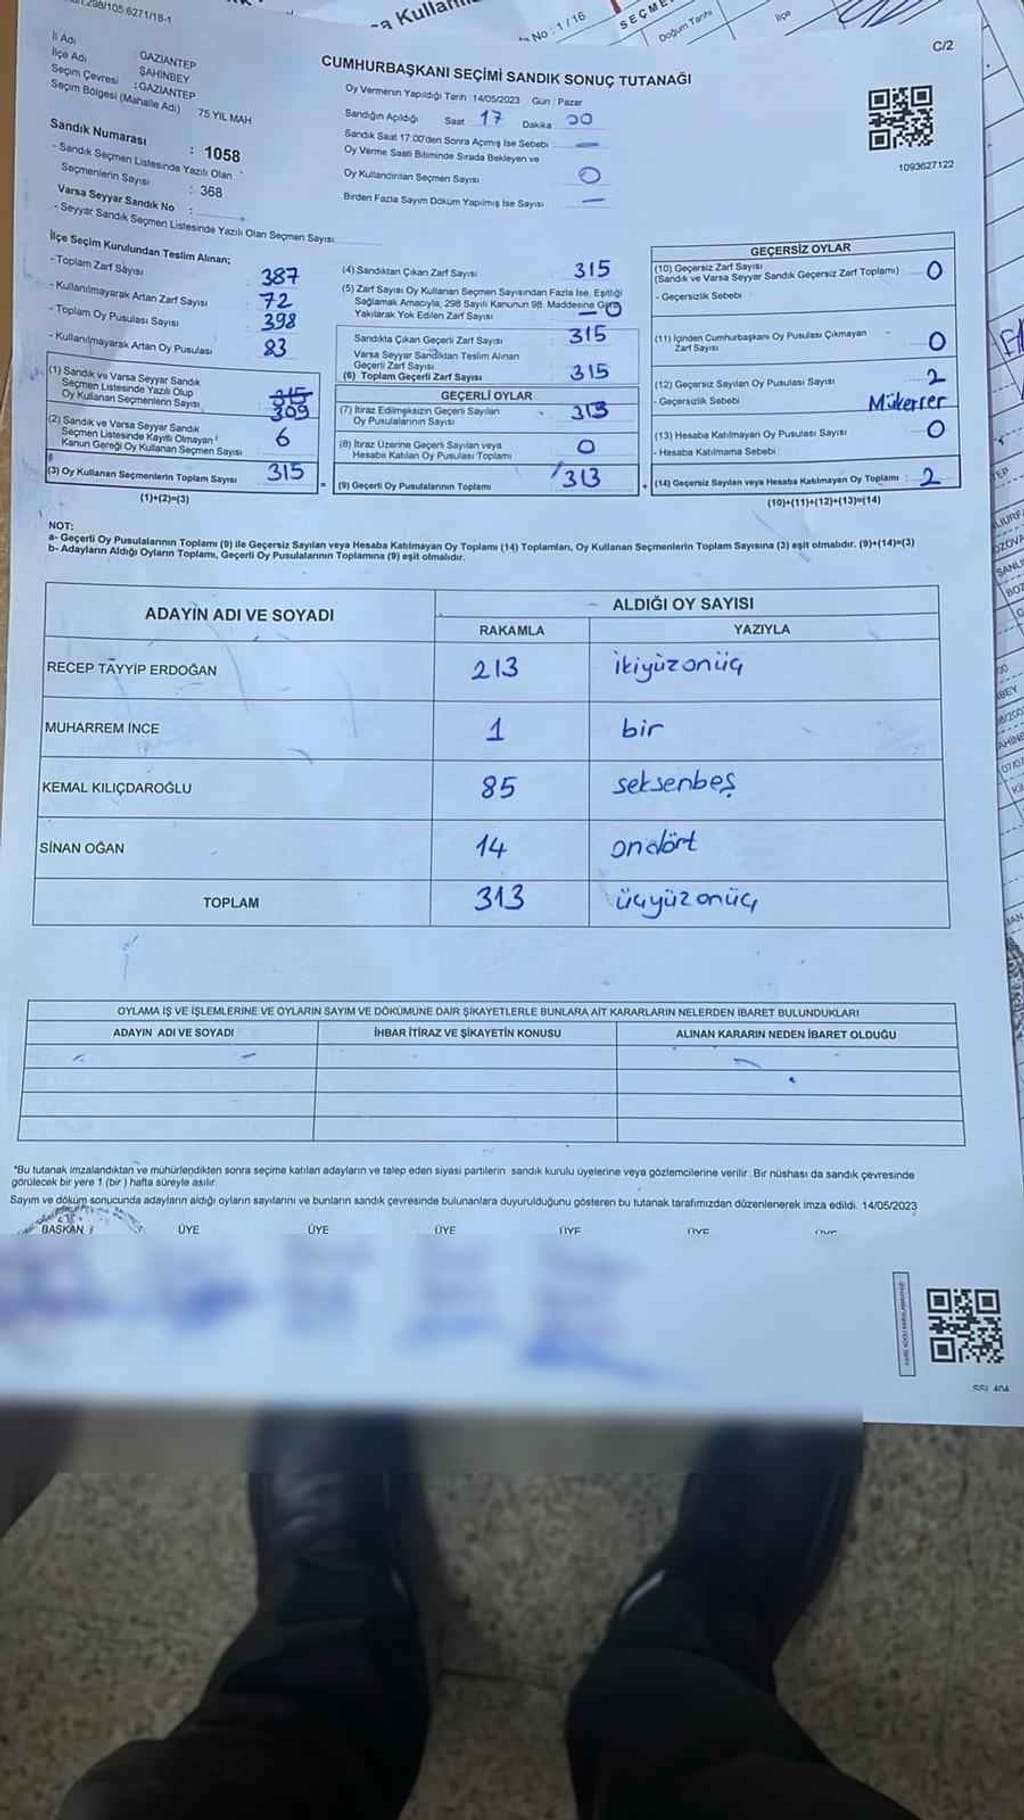 C/2
İl Adı : GAZİANTEP
İlçe Adı : ŞAHİNBEY
Seçim Çevresi : GAZİANTEP
Seçim Bölgesi (Mahalle Adı) 75 YIL MAH
Sandık Numarası : 1058
- Sandık Seçmen Listesinde Yazılı Olan
Seçmenlerin Sayısı : 368
Varsa Seyyar Sandık No :
- Seyyar Sandık Seçmen Listesinde Yazılı Olan Seçmen Sayısı
CUMHURBAŞKANI SEÇİMİ SANDIK SONUÇ TUTANAĞI
Oy Vermenin Yapıldığı Tarih :14/05/2023 Gün : Pazar
Sandığın Açıldığı Saat 17 Dakika 00
Sandık Saat 17:00'den Sonra Açılmış İse Sebebi —
Oy Verme Saati Bitiminde Sırada Bekleyen ve
Oy Kullandırılan Seçmen Sayısı 0
Birden Fazla Sayım Döküm Yapılmış İse Sayısı —
1093627122
İlçe Seçim Kurulundan Teslim Alınan;
- Toplam Zarf Sayısı 387
- Kullanılmayarak Artan Zarf Sayısı 72
- Toplam Oy Pusulası Sayısı 398
- Kullanılmayarak Artan Oy Pusulası 83
(1) Sandık ve Varsa Seyyar Sandık
Seçmen Listesinde Yazılı Olup
Oy Kullanan Seçmenlerin Sayısı 315 309
(2) Sandık ve Varsa Seyyar Sandık
Seçmen Listesinde Kayıtlı Olmayan
Kanun Gereği Oy Kullanan Seçmen Sayısı 6
(3) Oy Kullanan Seçmenlerin Toplam Sayısı 315
(1)+(2)=(3)
(4) Sandıktan Çıkan Zarf Sayısı 315
(5) Zarf Sayısı Oy Kullanan Seçmen Sayısından Fazla İse, Eşitliği
Sağlamak Amacıyla, 298 Sayılı Kanunun 98. Maddesine Göre
Yakılarak Yok Edilen Zarf Sayısı 0
Sandıkta Çıkan Geçerli Zarf Sayısı 315
Varsa Seyyar Sandıktan Teslim Alınan
Geçerli Zarf Sayısı
(6) Toplam Geçerli Zarf Sayısı 315
GEÇERLİ OYLAR
(7) İtiraz Edilmeksizin Geçerli Sayılan
Oy Pusulasının Sayısı 313
(8) İtiraz Üzerine Geçerli Sayılan veya
Hesaba Katılan Oy Pusulası Toplamı 0
= (9) Geçerli Oy Pusulalarının Toplamı 313
GEÇERSİZ OYLAR
(10) Geçersiz Zarf Sayısı
(Sandık ve Varsa Seyyar Sandık Geçersiz Zarf Toplamı) 0
- Geçersizlik Sebebi
(11) İçinden Cumhurbaşkanı Oy Pusulası Çıkmayan
Zarf Sayısı 0
(12) Geçersiz Sayılan Oy Pusulası Sayısı 2
- Geçersizlik Sebebi Mükerrer
(13) Hesaba Katılmayan Oy Pusulası Sayısı 0
- Hesaba Katılmama Sebebi
+ (14) Geçersiz Sayılan veya Hesaba Katılmayan Oy Toplamı : 2
(10)+(11)+(12)+(13)=(14)
NOT:
a- Geçerli Oy Pusulalarının Toplamı (9) ile Geçersiz Sayılan veya Hesaba Katılmayan Oy Toplamı (14) Toplamları, Oy Kullanan Seçmenlerin Toplam Sayısına (3) eşit olmalıdır. (9)+(14)=(3)
b- Adayların Aldığı Oyların Toplamı, Geçerli Oy Pusulalarının Toplamına (9) eşit olmalıdır.
ADAYIN ADI VE SOYADI ALDIĞI OY SAYISI
RAKAMLA YAZIYLA
RECEP TAYYİP ERDOĞAN 213 ikiyüzonüç
MUHARREM İNCE 1 bir
KEMAL KILIÇDAROĞLU 85 seksenbeş
SİNAN OĞAN 14 ondört
TOPLAM 313 üçyüzonüç
OYLAMA İŞ VE İŞLEMLERİNE VE OYLARIN SAYIM VE DÖKÜMÜNE DAİR ŞİKAYETLERLE BUNLARA AİT KARARLARIN NELERDEN İBARET BULUNDUKLARI
ADAYIN ADI VE SOYADI İHBAR İTİRAZ VE ŞİKAYETİN KONUSU ALINAN KARARIN NEDEN İBARET OLDUĞU
*Bu tutanak imzalandıktan ve mühürlendikten sonra seçime katılan adayların ve talep eden siyasi partilerin sandık kurulu üyelerine veya gözlemcilerine verilir. Bir nüshası da sandık çevresinde
görülecek bir yere 1 (bir ) hafta süreyle asılır.
Sayım ve döküm sonucunda adayların aldığı oyların sayılarını ve bunların sandık çevresinde bulunanlara duyurulduğunu gösteren bu tutanak tarafımızdan düzenlenerek imza edildi. 14/05/2023
BAŞKAN ÜYE ÜYE ÜYE ÜYE ÜYE